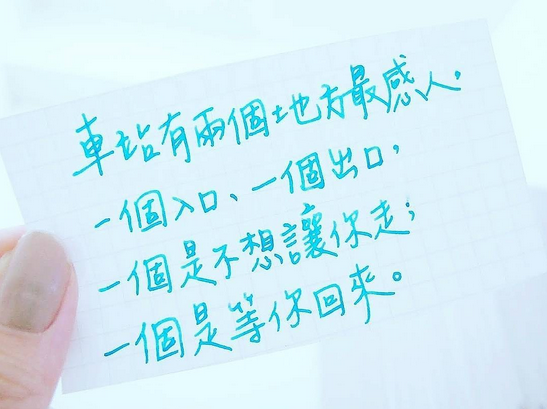 車站有兩個地方最感人。
一個入口、一個出口，
一個是不想讓你走；
一個是等你回來。